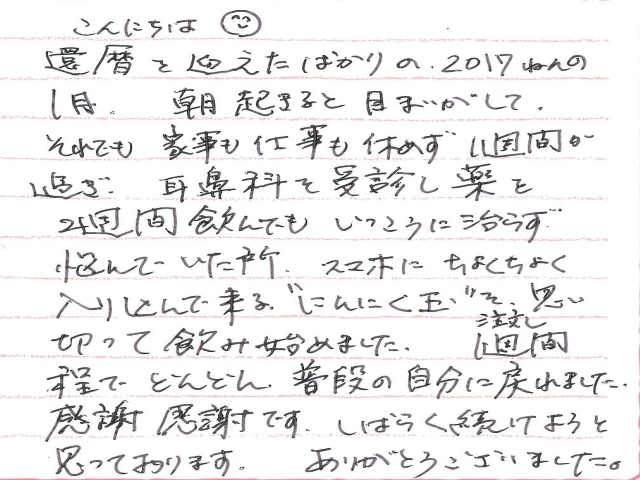 こんにちは
還暦を迎えたばかりの、2017ねんの
1月、朝起きると目まいがして、
それでも家事も仕事も休めず1週間が
過ぎ、耳鼻科を受診し薬を
2週間飲んでもいっこうに治らず
悩んでいた所、スマホにちょくちょく
入り込んで来る"にんにく玉"を、思い
切って注文し飲み始めました。1週間
程でどんどん、普段の自分に戻れました。
感謝感謝です。しばらく続けようと
思っております。ありがとうございました。